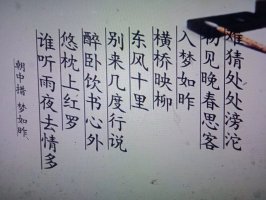 难猜处处滂沱
初见晚春思客
入梦如昨
横桥映柳
东风十里
别来几度行说
醉卧饮书心外
悠枕上红罗
谁听雨夜去情多
朝中措 梦如昨